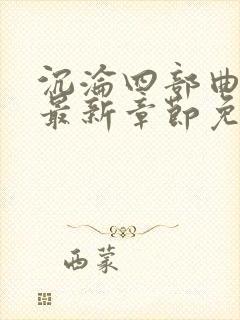 沉沦四部曲
最新章节免
西蒙